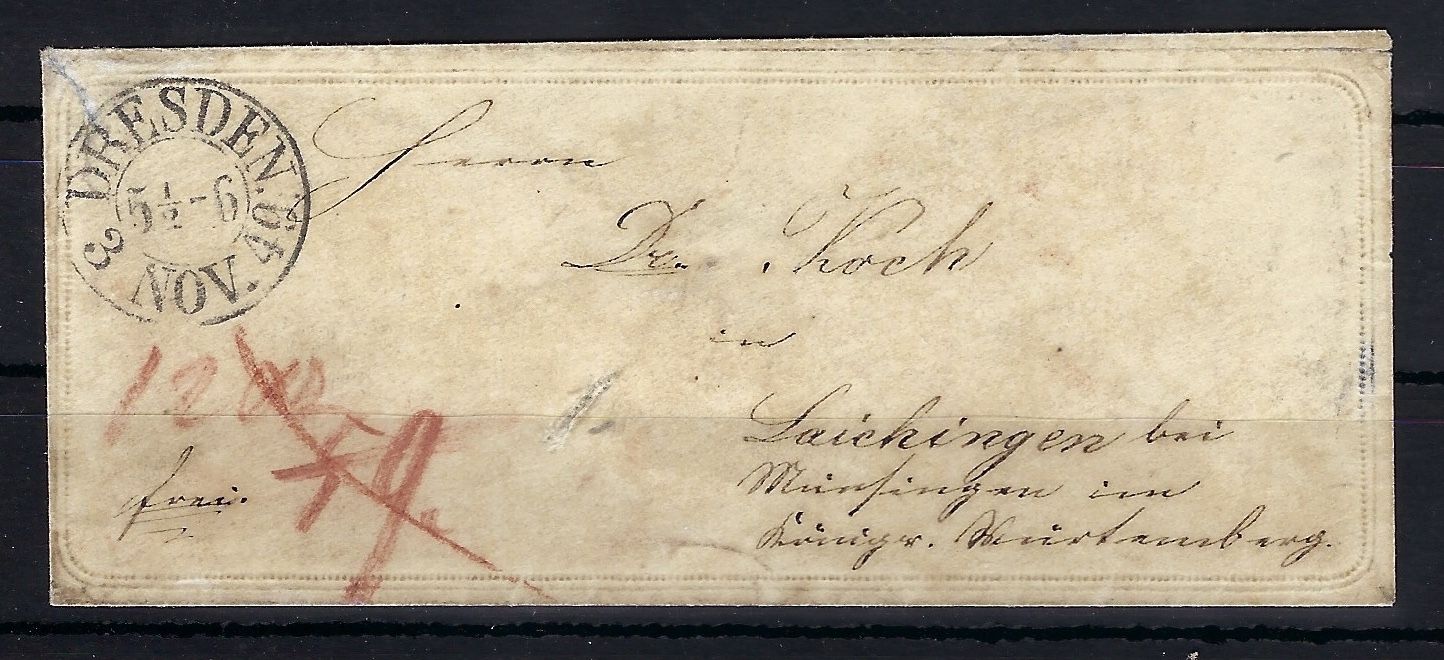 DRESDEN.
5½-6
3 NOV. 49
Herrn
Dr. Koch
in
Laichingen bei
Münsingen im
Königr. Würtemberg.
frei.